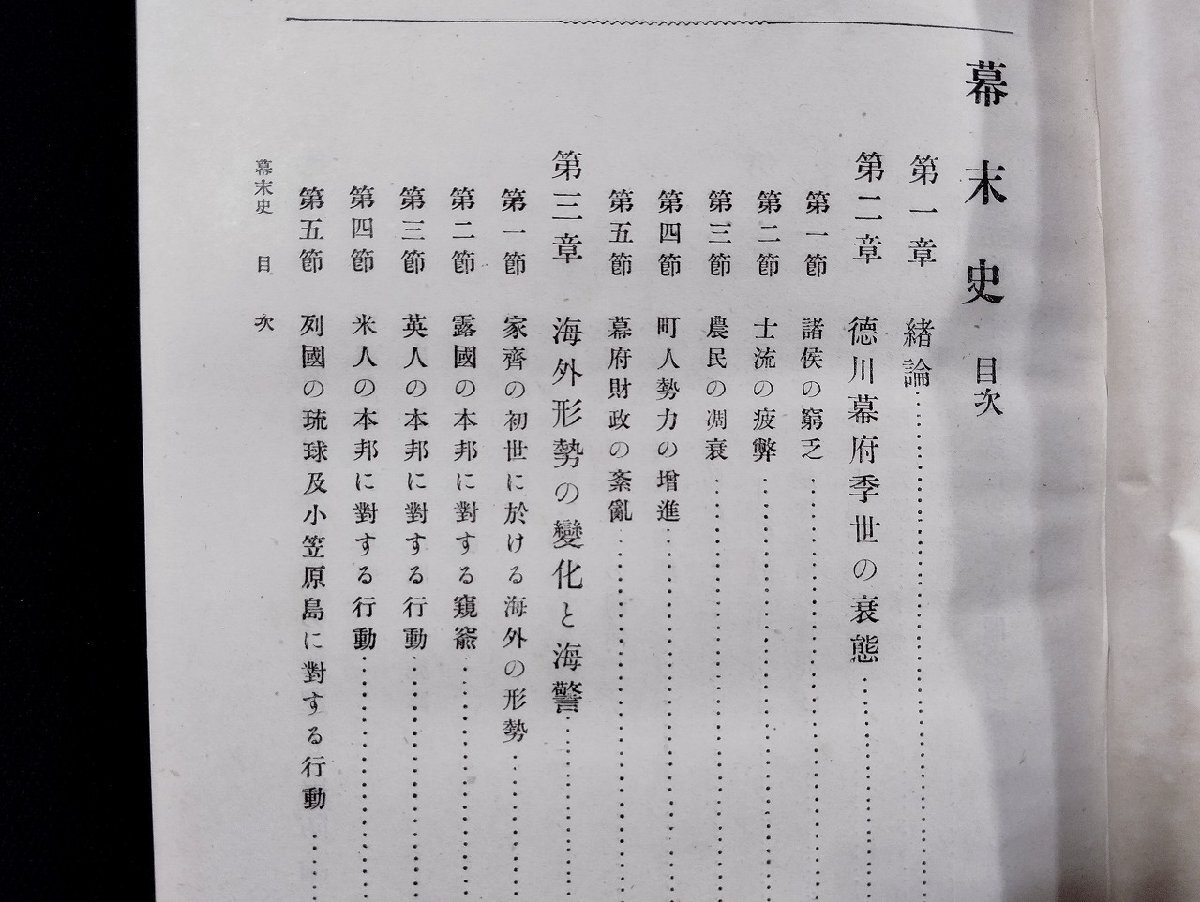 幕末史 目次
第一章 緒論
第二章 徳川幕府季世の衰態
第一節 諸侯の窮乏
第二節 士流の疲弊
第三節 農民の凋衰
第四節 町人勢力の増進
第五節 幕府財政の紊亂
第三章 海外形勢の變化と海警
第一節 家齊の初世に於ける海外の形勢
第二節 露國の本邦に對する窺窬
第三節 英人の本邦に對する行動
第四節 米人の本邦に對する行動
第五節 列國の琉球及小笠原島に對する行動
幕末史 目次